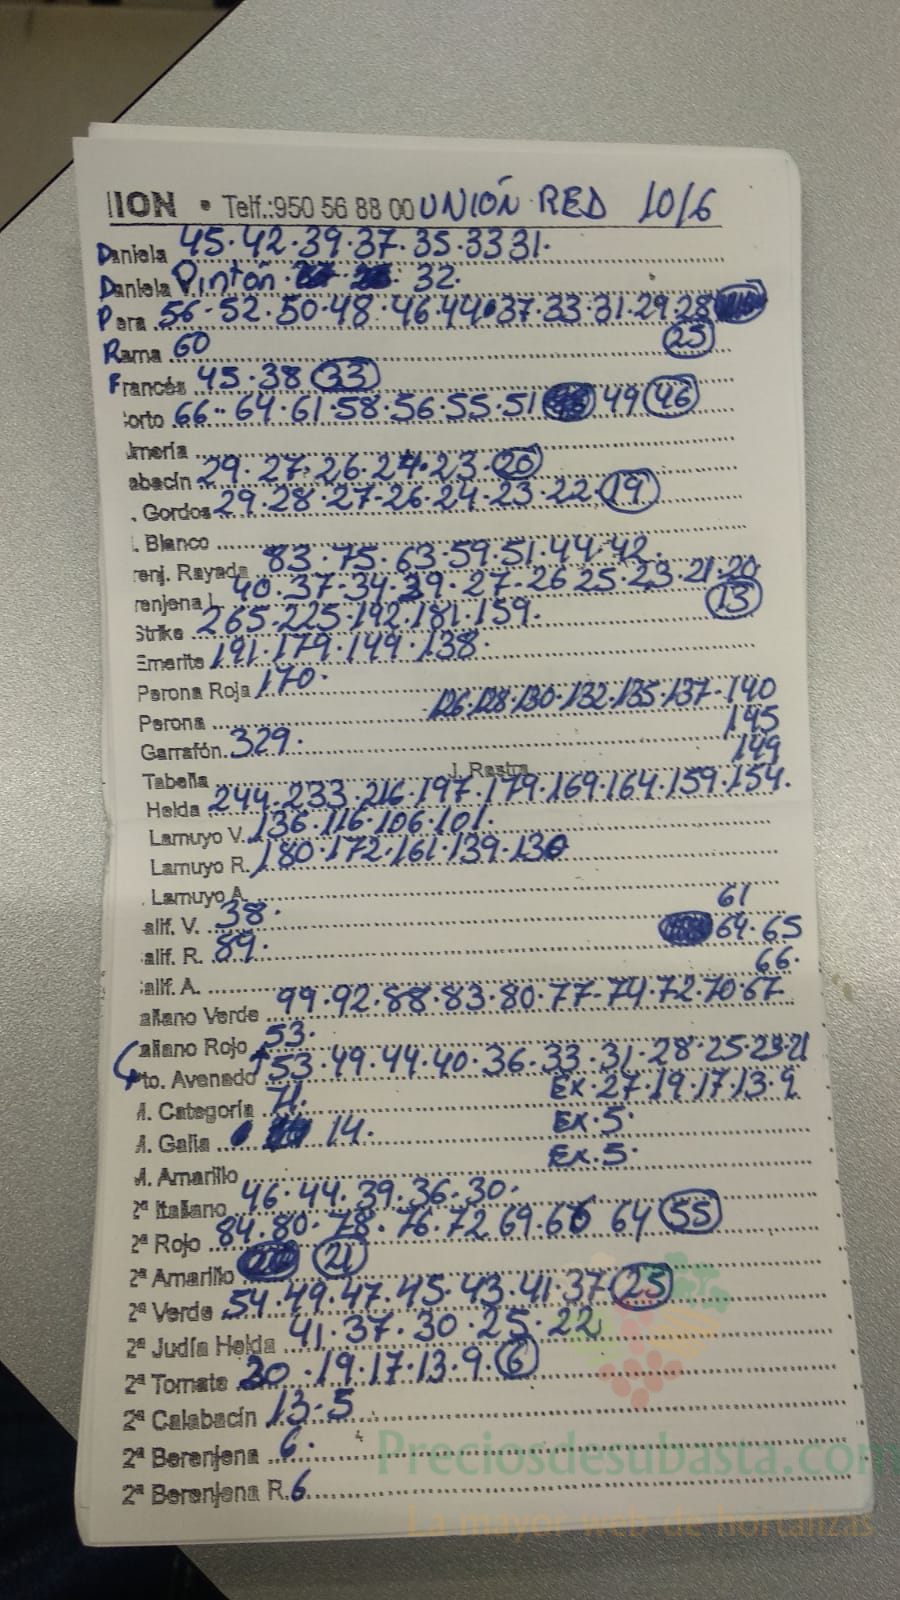 IION • Telf.:950 56 88 00 UNIÓN RED 10/6
Daniela 45·42·39·37·35·33 31·
Daniela Pintón 32·
Pera 56·52·50·48·46·44·37·33·31·29·28
Rama 60 25
Francés 45·38 33
orto 66·64·61·58·56·55·51 49 46
lmería
abacín 29·27·26·24·23·20
. Gordos 29·28·27·26·24·23·22·19
. Blanco
renj. Rayada 83·75·63·59·51·44·42·
renjena L 40·37·34·29·27·26 25·23·21·20
Strike 265·225·192·181·159· 13
Emerite 191·179·149·138·
Perona Roja 170·
Perona 126·128·130·132·135·137·140
Garrafón 329· 145
Tabella J. Rastra 149
Helda 244·233·216·197·179·169·164·159·154·
Lamuyo V. 136·116·106·101·
Lamuyo R. 180·172·161·139·130
. Lamuyo A. 61
alif. V. 38· 64·65
alif. R. 89· 66·
alif. A.
aliano Verde 99·92·88·83·80·77·74·72·70·67
aliano Rojo 53·
to. Avenado 53·49·44·40·36·33·31·28·25·23·21
A. Categoría 71· Ex·27·19·17·13·9
A. Galia 14· Ex·5·
A. Amarillo Ex·5·
2ª Italiano 46·44·39·36·30·
2ª Rojo 84·80·78·76·72 69·66 64 55
2ª Amarillo 21
2ª Verde 54·49·47·45·43·41·37 25
2ª Judía Helda 41·37·30·25·22
2ª Tomate 20·19·17·13·9·6
2ª Calabacín 13·5
2ª Berenjena 6·
2ª Berenjena R. 6
Preciosdesubasta.com
La mayor web de hortalizas